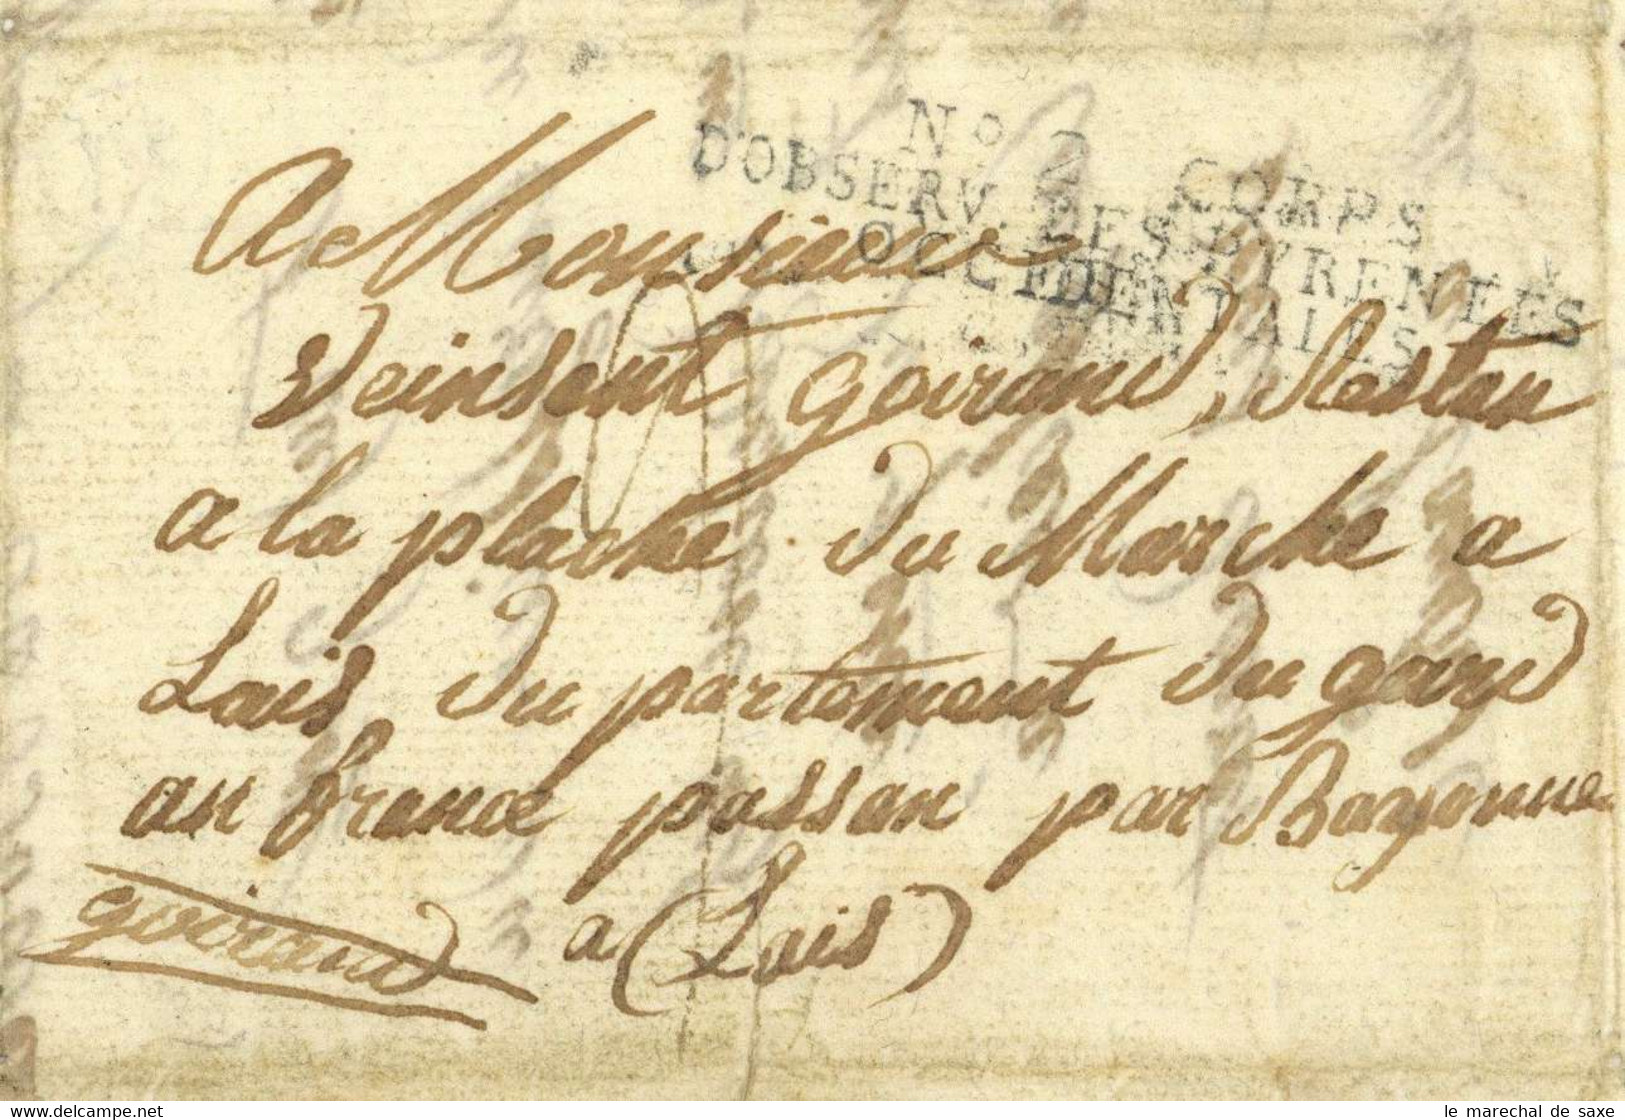 No 2 CORPS
D'OBSERV. DES PYRENEES
OCCIDENTALES
A Monsieur
Veinsent goirand, Restan
a la plache du Marche a
Lais du partement du gard
an france passan par Bayonne
goirand a (Lais)
www.delcampe.net
le marechal de saxe